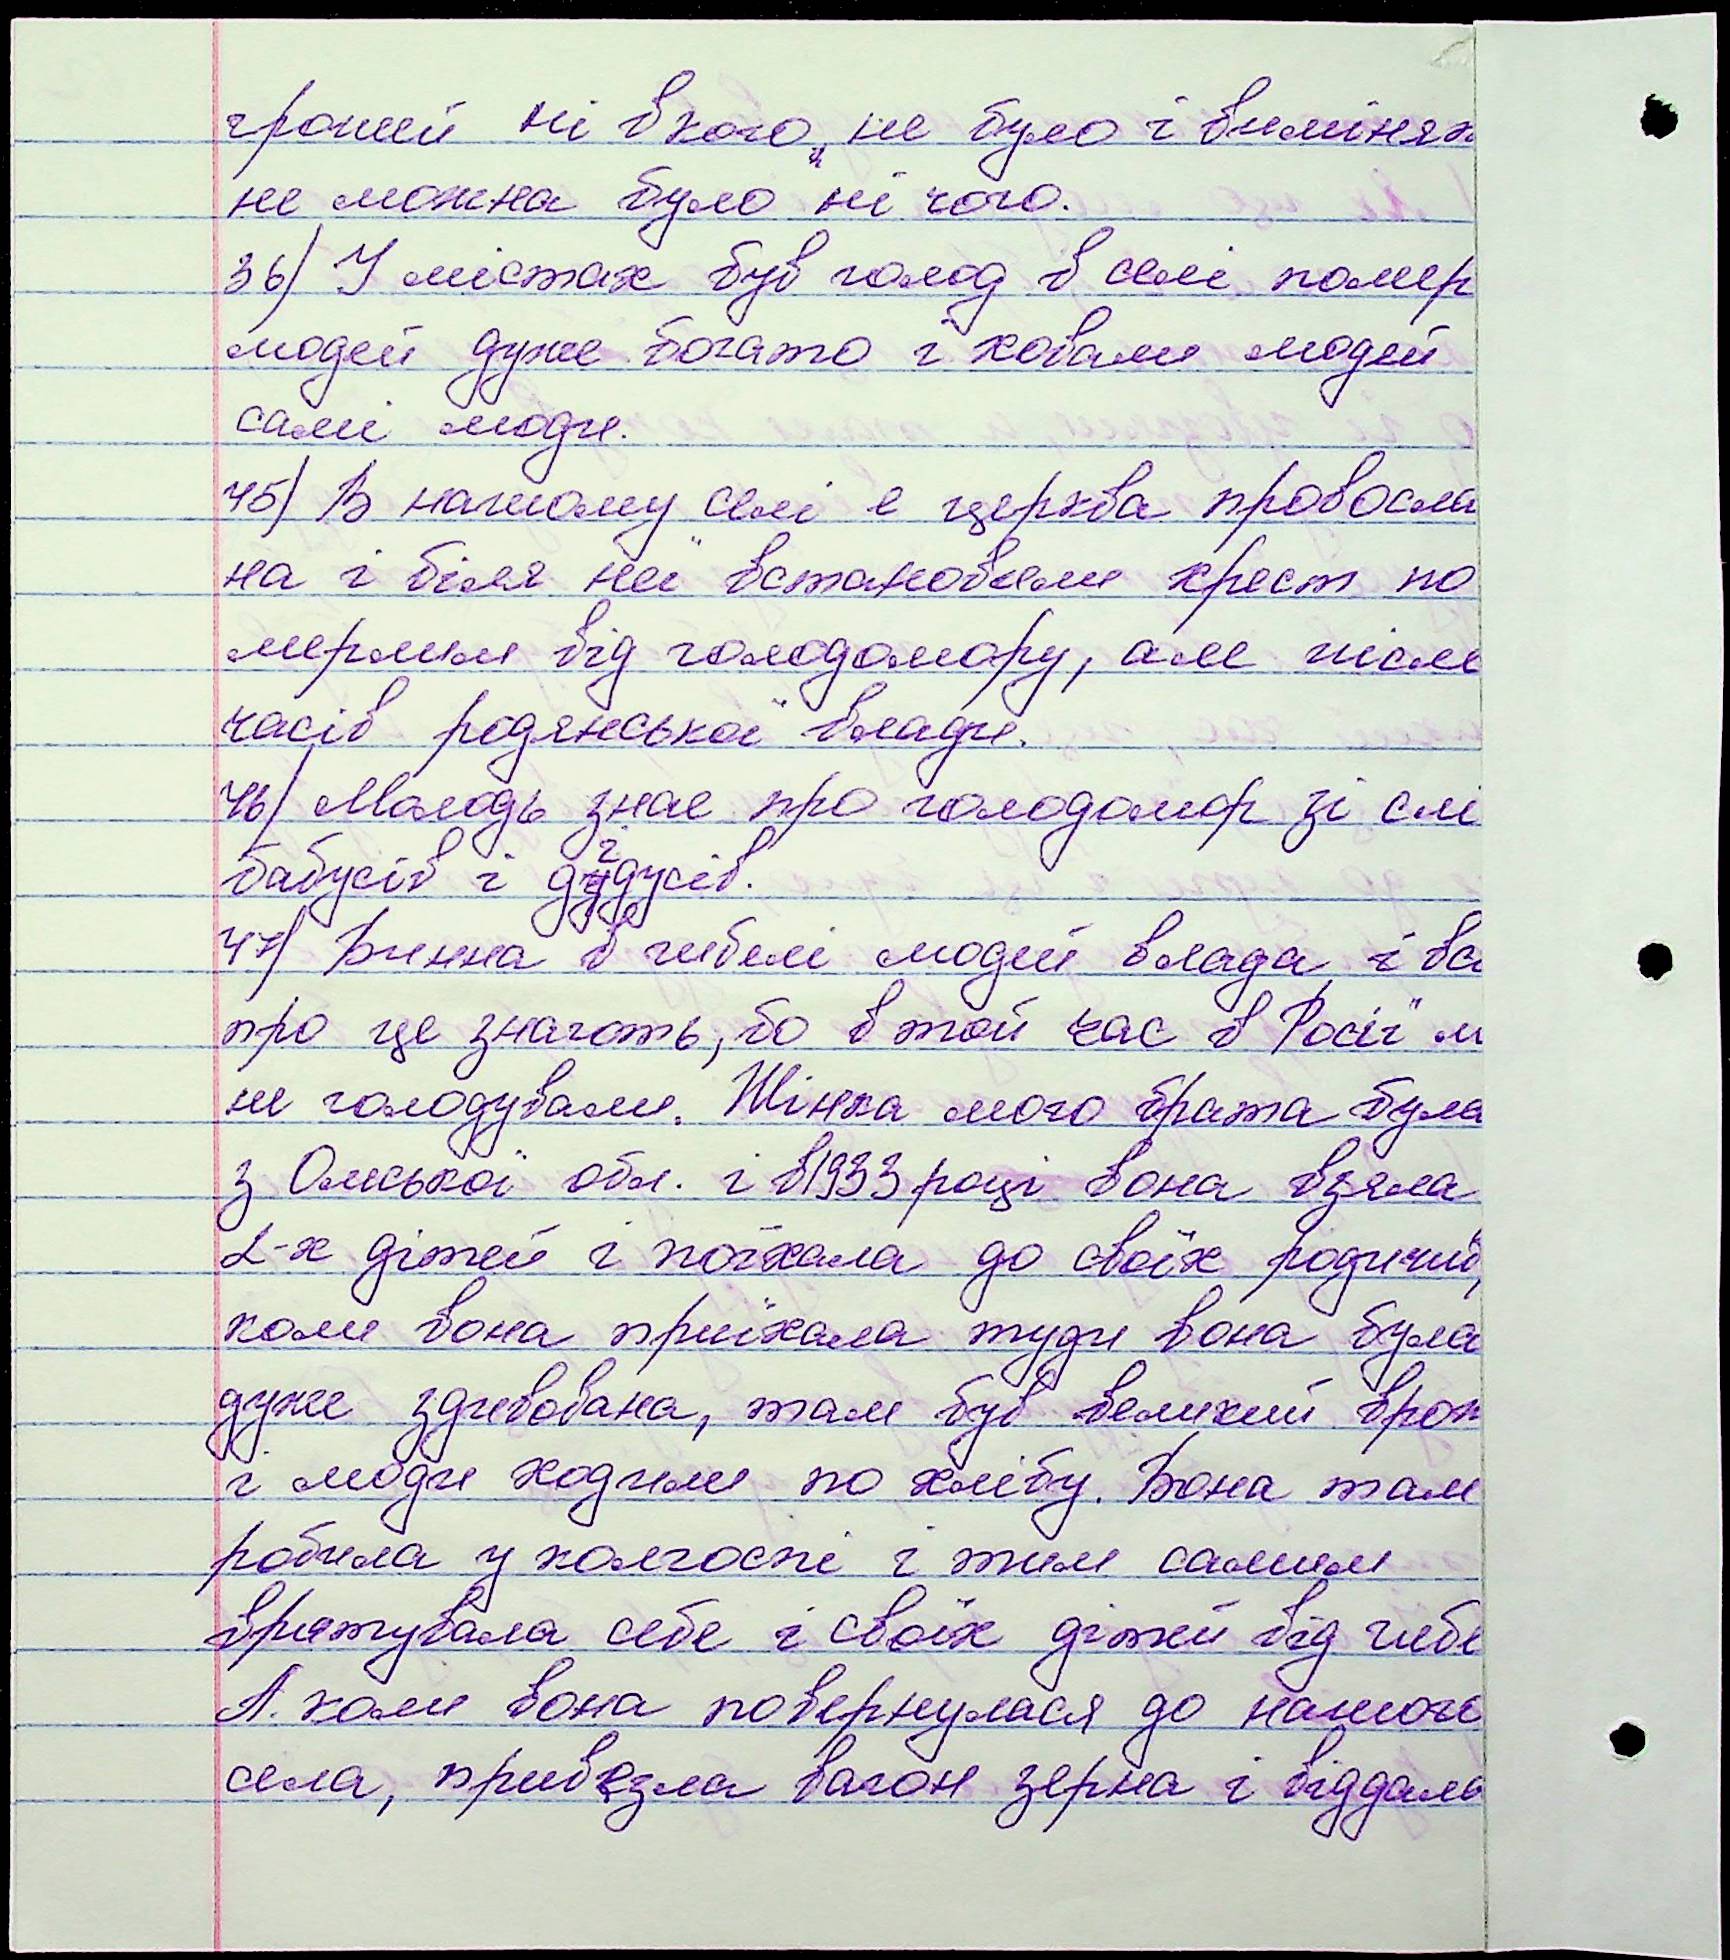 грошей ні вкого не було і виміня
не можна було ні чого.
36/ У містах був голод в селі помер
людей дуже богато і ховали людей
самі люди.
45/ В нашому селі е церква провосла
на і біля неї встановили хрест по
мерлим від голодомору, але після
часів родянської влади.
46/ Молодь знае про голодомор зі слі
бабусів і дідусів.
47/ Винна в гибелі людей влада і вс
про це знають, бо в той час в Росії л
не голодували. Жінка мого брата була
з Омської обл. і в 1933 році вона взяла
2-х дітей і поїхала до своїх родичив,
коли вона приїхала туди вона була
дуже здивована, там був великий врож
і люди ходили по хлібу. Вона там
робила у колгоспі і тим самим
врятувала себе і своїх дітей від гибе
А коли вона повернулася до нашого
села, привезла вагон зерна і віддала